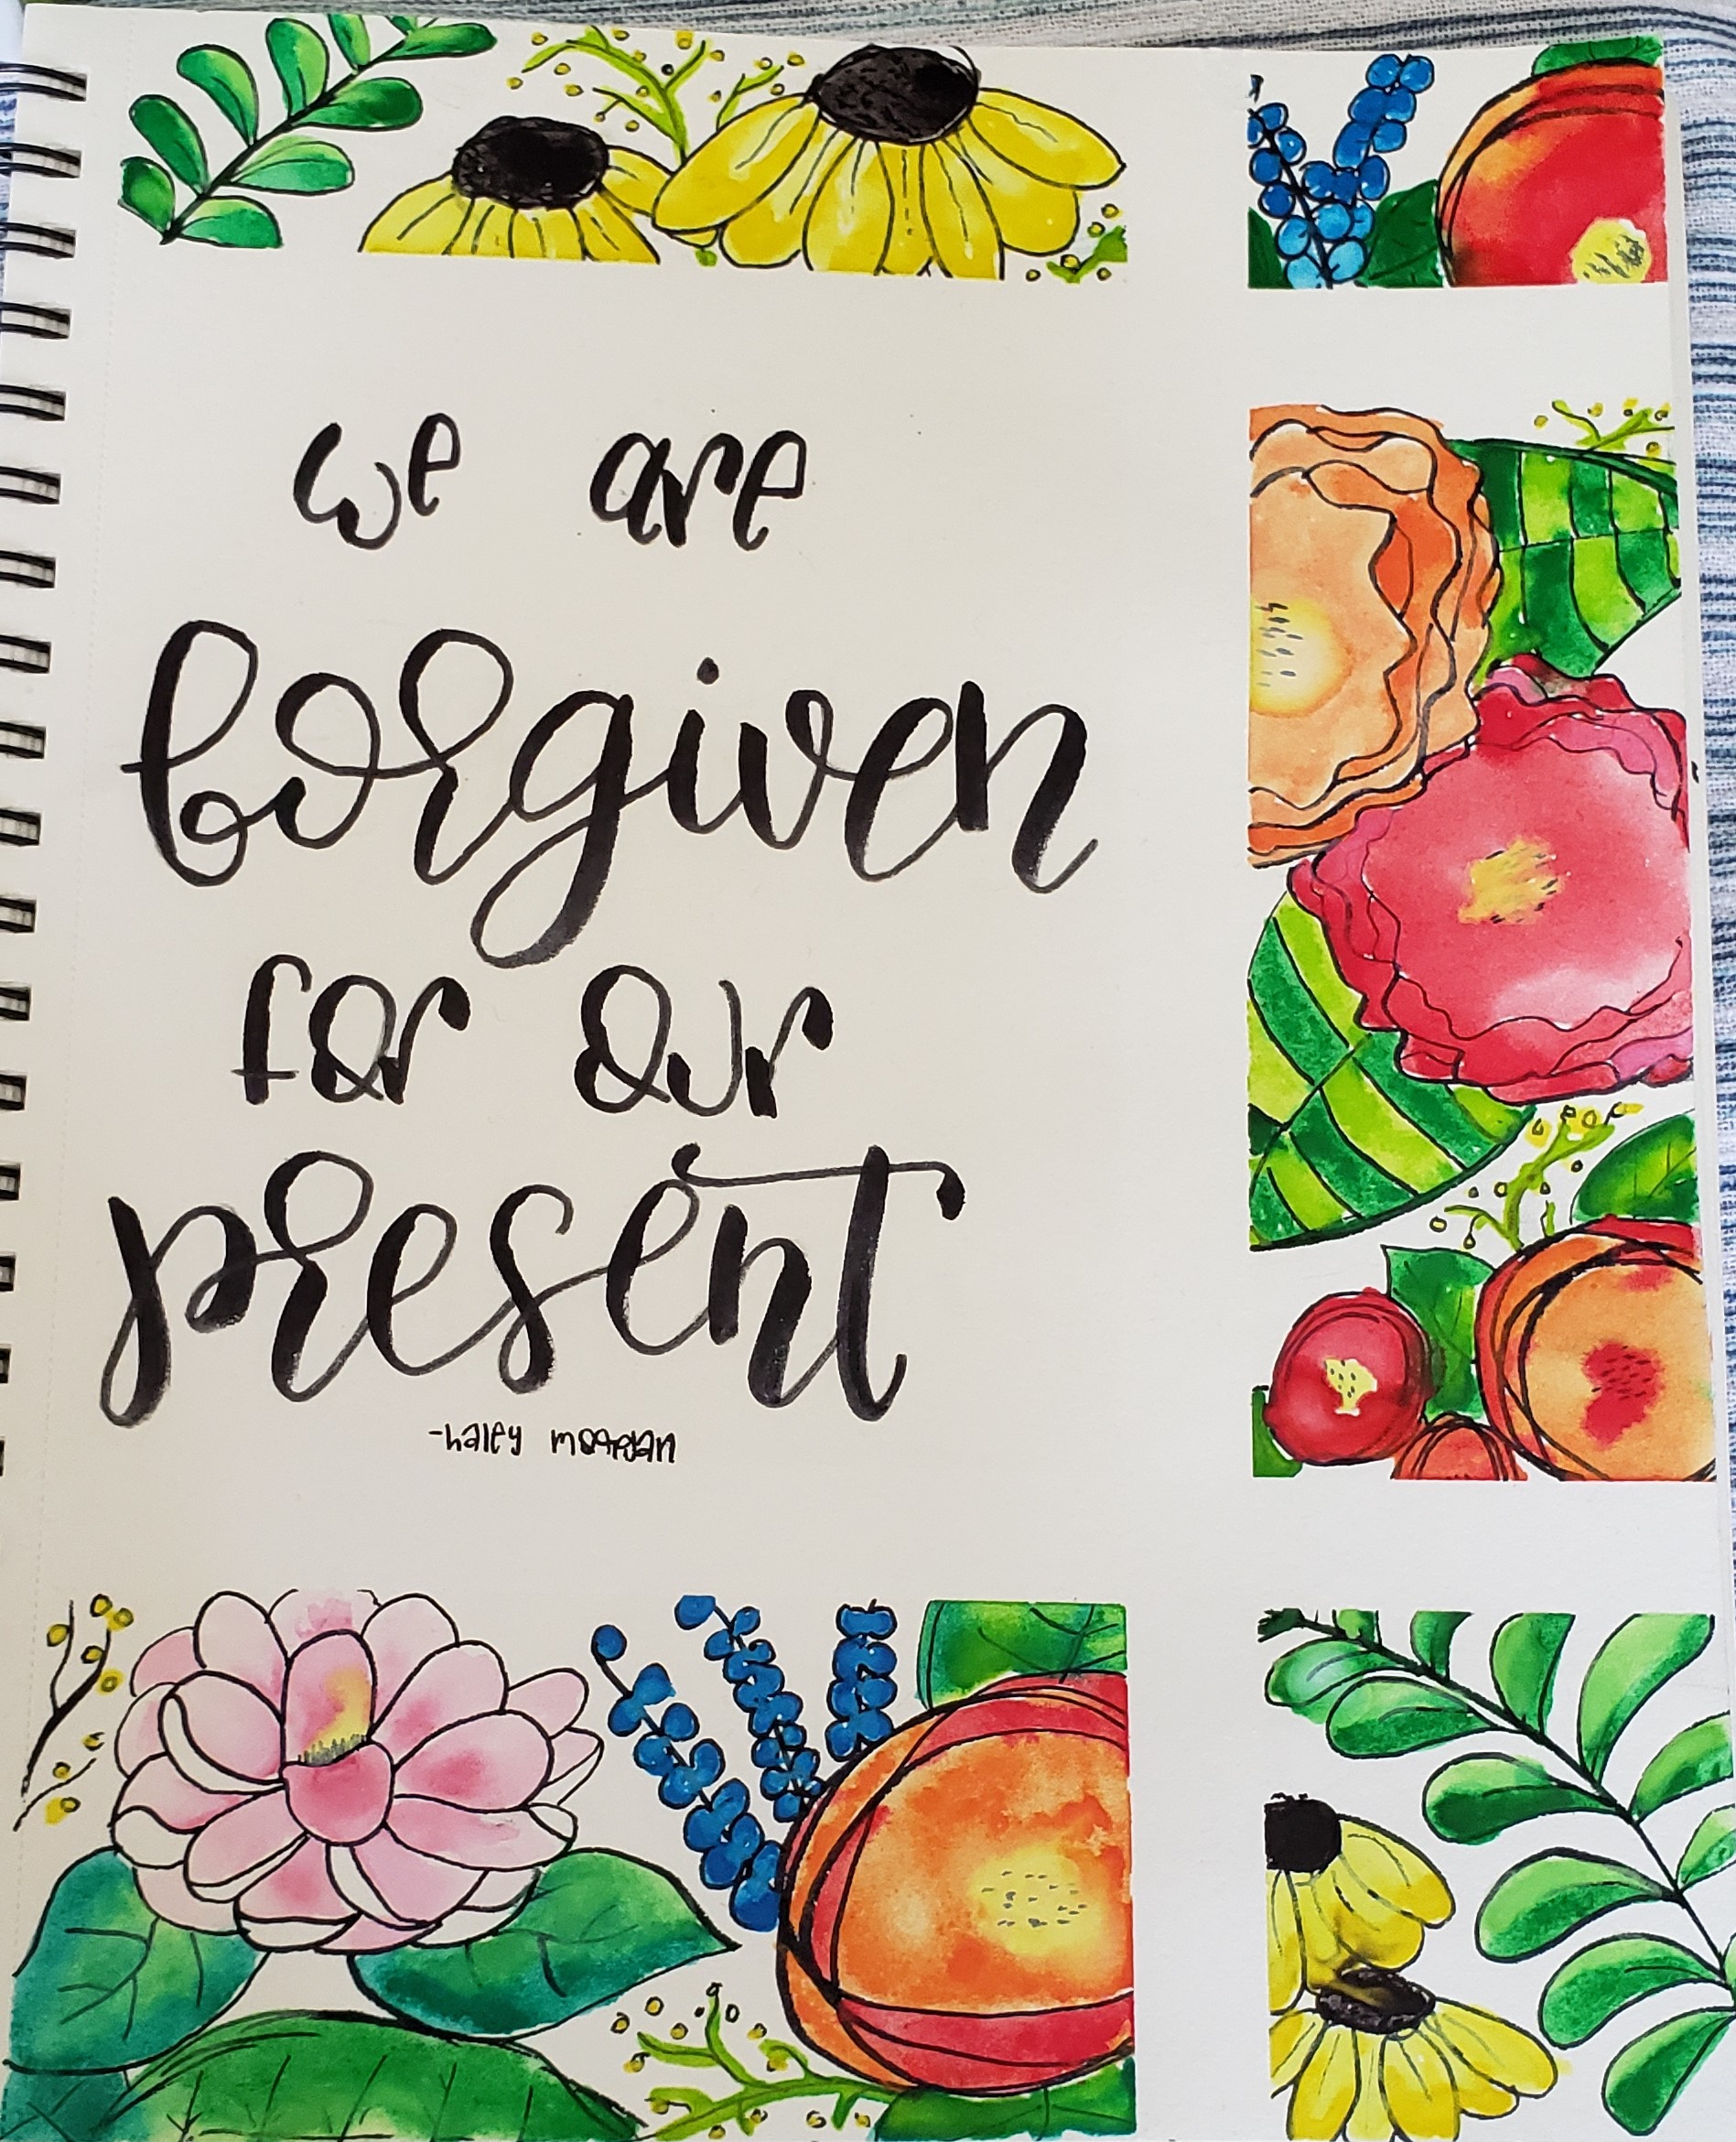 we are
forgiven
for our
present
-haley morgan